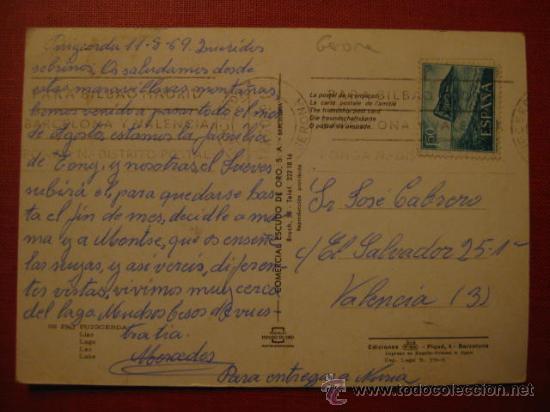 Puigcerdá 11-8-69. Queridos
sobrinos, Os saludamos desde
estas maravillosas montañas,
hemos venido a pasar todo el mes
de Agosto estamos la familia
de Tony, y nosotras el Jueves
subirá el para quedarse has
ta el fin de mes, decidle a ma
ma y a Montse, que os enseñe
las suyas, y asi vereis, diferen
tes vistas, vivimos muy cerca
del lago Muchos besos de vues
tra tia
Mercedes
Para entregar a Nuria
Gerona
La postal de la amistad
La carte postale de l'amitié
The friendship post card
Die freundschaftskarte
O postal da amizade
ESPAÑA
COMERCIAL ESCUDO DE ORO, S. A. - BARCELONA
Reproducción prohibida
Sr José Cabrero
c/ El Salvador 25 1º
Valencia (3)
PUIGCERDA
Lago
Lac
Lake
ESCUDO DE ORO
Ediciones
Piqué, 4 - Barcelona
todocoleccion.net